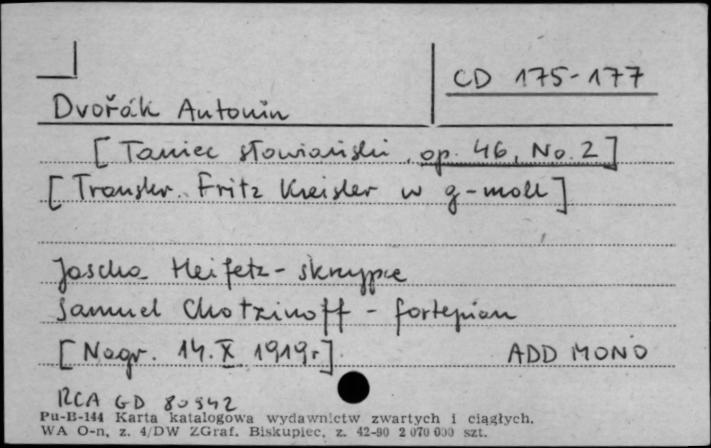 CD 175-177
Dvořák Antonin
[Taniec słowiański, op. 46, No. 2]
[Transkr. Fritz Kreisler w g-moll]
Jascha Heifetz - skrzypce
Samuel Chotzinoff - fortepian
[Nagr. 14. X 1919r.]
ADD MONO
RCA GD 80942
Pu-B-144 Karta katalogowa wydawnictw zwartych i ciągłych.
WA O-n, z. 4/DW ZGraf. Biskupiec, z. 42-80 2 070 000 szt.